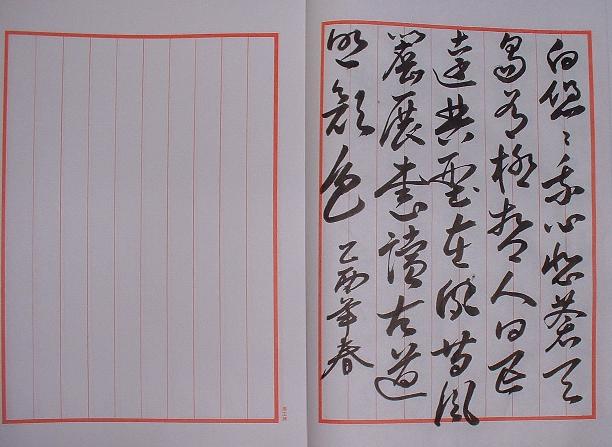 白悠〻我心悲蒼天
曷有極哲人日已
遠典型在夙昔風
簷展書讀古道
照顏色 乙酉年春